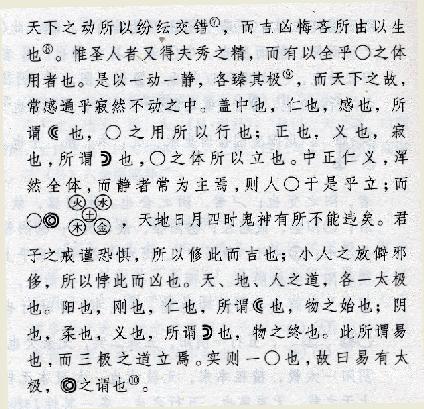 天下之动所以纷纭交错⑦，而吉凶悔吝所由以生
也⑧。惟圣人者又得夫秀之精，而有以全乎○之体
用者也。是以一动一静，各臻其极⑨，而天下之故，
常感通乎寂然不动之中。盖中也，仁也，感也，所
谓☾也，○之用所以行也；正也，义也，寂
也，所谓☽也，○之体所以立也。中正仁义，浑
然全体，而静者常为主焉，则人○于是乎立；而
○◎火水土木金，天地日月四时鬼神有所不能违矣。君
子之戒谨恐惧，所以修此而吉也；小人之放僻邪
侈，所以悖此而凶也。天、地、人之道，各一太极
也。阳也，刚也，仁也，所谓☾也，物之始也；阴
也，柔也，义也，所谓☽也，物之终也。此所谓易
也，而三极之道立焉。实则一○也，故曰易有太
极，◎之谓也⑩。